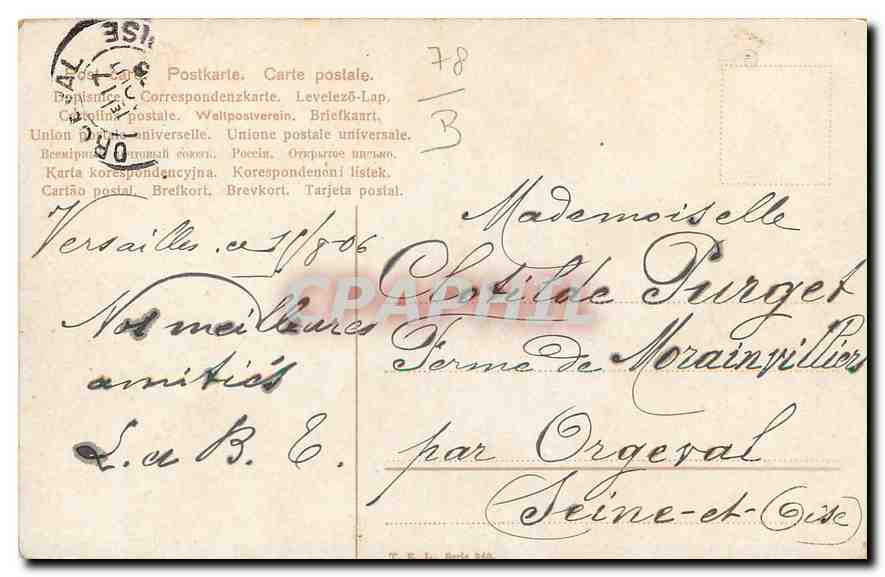 Post card. Postkarte. Carte postale.
Dopisnice. Correspondenzkarte. Levelező-Lap.
Cartolina postale. Weltpostverein. Briefkaart.
Union postale universelle. Unione postale universale.
Всемірный почтовый союзъ. Россія. Открытое письмо.
Karta korespondencyjna. Korespondenční lístek.
Cartão postal. Brefkort. Brevkort. Tarjeta postal.
ORGEVAL
78
B
Versailles. ce 1/8 06
Nos meilleures
amitiés
L. et B. E.
Mademoiselle
Clotilde Purget
Ferme de Morainvilliers
par Orgeval
Seine-et-(Oise)
CPAPHIL
T. E. L. Serie